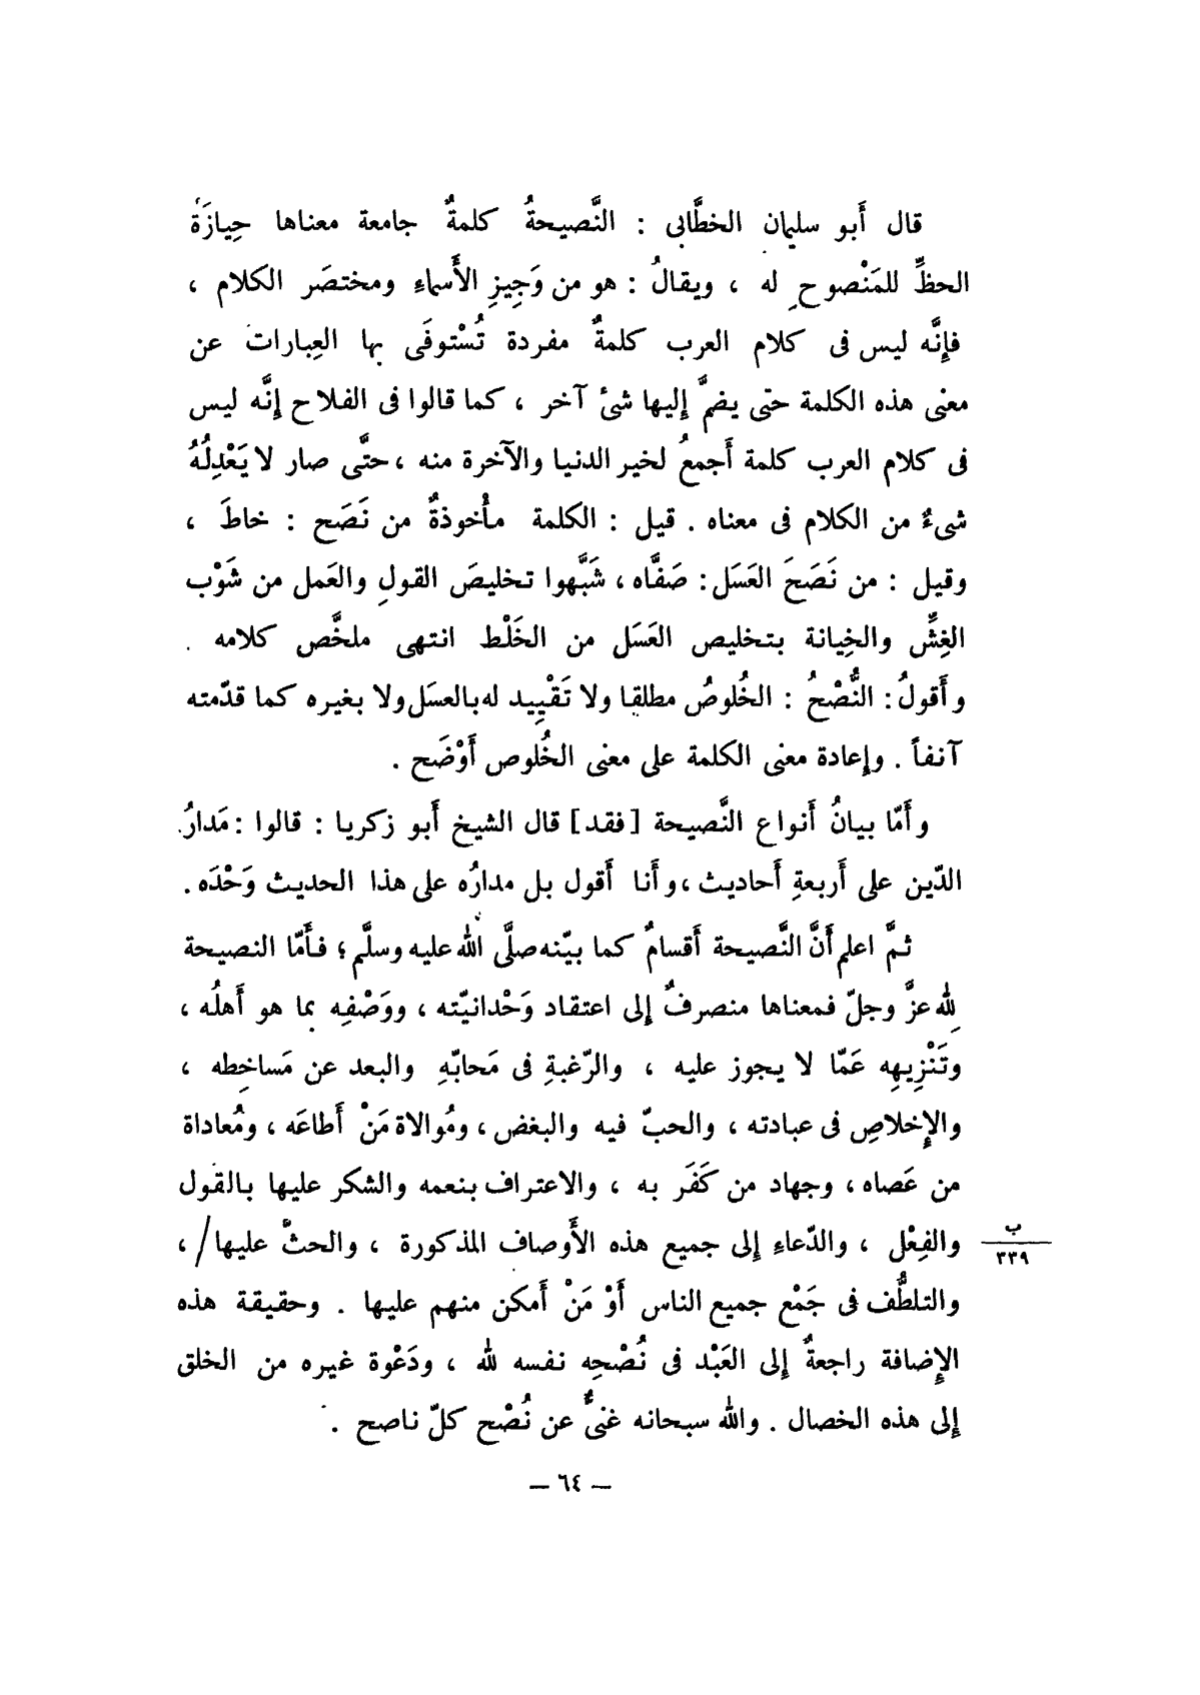 قال أَبو سليمان الخطَّابى : النَّصيحةُ كلمةٌ جامعة معناها حِيازَةُ
الحظِّ للمَنْصوحِ له ، ويقالُ : هو من وَجِيزِ الأَسماءِ ومختصَر الكلام ،
فإِنَّه ليس فى كلام العرب كلمةٌ مفردة تُسْتوفَى بها العِبارات عن
معنى هذه الكلمة حتى يضمَّ إليها شئ آخر ، كما قالوا فى الفلاح إِنَّه ليس
فى كلام العرب كلمة أَجمعُ لخير الدنيا والآخرة منه ، حتَّى صار لا يَعْدِلُهُ
شىءٌ من الكلام فى معناه . قيل : الكلمة مأْخوذةٌ من نَصَح : خاطَ ،
وقيل : من نَصَحَ العَسَل : صَفَّاه ، شَبَّهوا تخليصَ القولِ والعَمل من شَوْب
الغِشِّ والخِيانة بتخليص العَسَل من الخَلْط انتهى ملخَّص كلامه .
وأَقولُ : النُّصْحُ : الخُلوصُ مطلقا ولا تَقْيِيد له بالعسَل ولا بغيره كما قدّمته
آنفاً . وإعادة معنى الكلمة على معنى الخُلوص أَوْضَح .
وأَمّا بيانُ أَنواع النَّصيحة [ فقد ] قال الشيخ أَبو زكريا : قالوا : مَدارُ
الدّين على أَربعةِ أَحاديث ، وأَنا أَقول بل مدارُه على هذا الحديث وَحْدَه .
ثمَّ اعلم أَنَّ النَّصيحة أَقسامٌ كما بيّنه صلَّى الله عليه وسلَّم ؛ فأَمّا النصيحة
لِلّه عزَّ وجلّ فمعناها منصرفٌ إلى اعتقاد وَحْدانيّته ، ووَصْفِه بما هو أَهلُه ،
وتَنْزِيهِه عَمّا لا يجوز عليه ، والرّغبةِ فى مَحابّهِ والبعد عن مَساخِطه ،
والإِخلاصِ فى عبادته ، والحبّ فيه والبغض ، ومُوالاة مَنْ أَطاعَه ، ومُعاداة
من عَصاه ، وجهاد من كَفَر به ، والاعتراف بنعمه والشكر عليها بالقول
والفِعْل ، والدّعاءِ إِلى جميع هذه الأَوصاف المذكورة ، والحثّ عليها / ،
ب
٣٣٩
والتلطُّف فى جَمْع جميع الناس أَوْ مَنْ أَمكن منهم عليها . وحقيقة هذه
الإِضافة راجعةٌ إِلى العَبْد فى نُصْحِه نفسه لله ، ودَعْوة غيره من الخلق
إِلى هذه الخصال . والله سبحانه غنىٌّ عن نُصْح كلّ ناصح .
— ٦٤ —